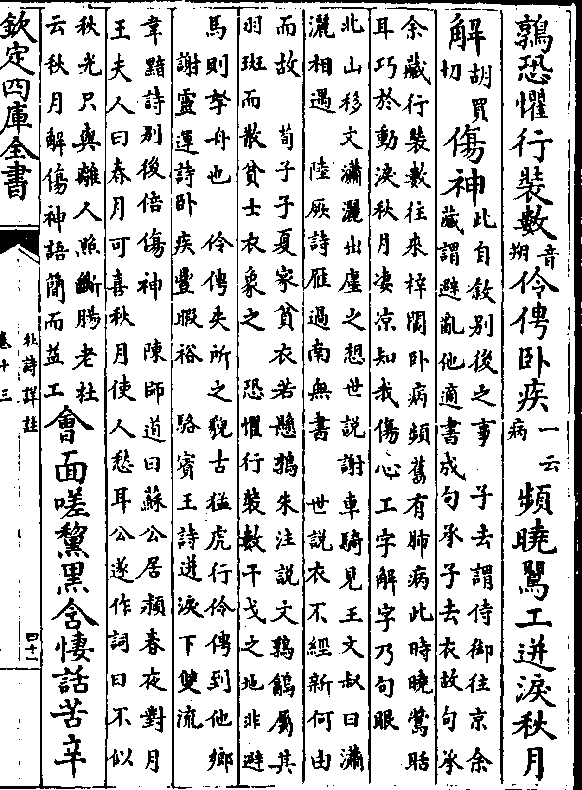 鶉恐懼行裝數音朔伶俜卧疾一云病頻曉鶯工迸淚秋月
解胡買切傷神此自敘別後之事 子去謂侍御往京余
藏謂避亂他適書成句承子去衣故句承
余藏行裝數往來梓閬卧病頻舊有肺病此時曉鶯聒
耳巧於動淚秋月凄涼知我傷心工字解字乃句眼
北山移文瀟灑出塵之想世說謝車騎見王文叔曰瀟
灑相遇 陸厥詩雁過南無書 世說衣不經新何由
而故 荀子子夏家貧衣若懸鶉朱注說文鶉鷂屬其
羽斑而散貧士衣象之 恐懼行裝數干戈之地非避
馬則拏舟也 伶俜失所之貌古猛虎行伶俜到他鄉
謝靈運詩卧疾豐暇裕 駱賓王詩迸淚下雙流
韋黯詩別後倍傷神 陳師道曰蘇公居潁春夜對月
王夫人曰春月可喜秋月使人愁耳公遂作詞曰不似
秋光只與離人照斷腸老杜
云秋月解傷神語簡而益工會面嗟黧黑含悽話苦辛
欽定四庫全書
杜詩詳註
卷十三
四十一